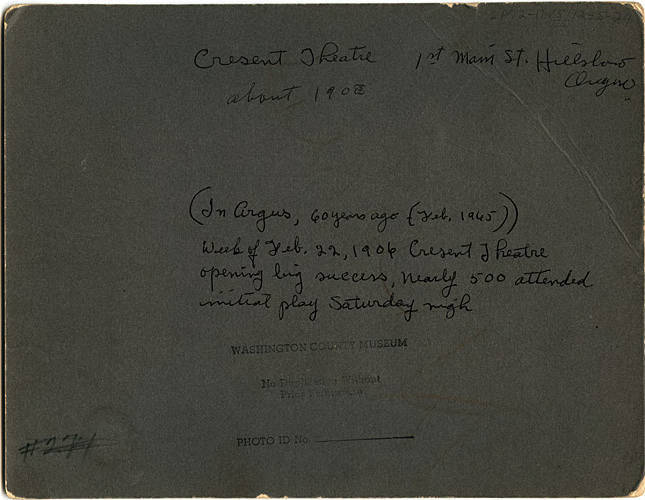 Cresent Theatre 1st Main St. Hillsboro
Oregon
about 190
(In Argus, 60 years ago (Feb. 1965))
Week of Feb. 22, 1906 Cresent Theatre
opening big success, nearly 500 attended
initial play Saturday nigh
WASHINGTON COUNTY MUSEUM
No Duplication Without
Prior Permission
PHOTO ID No.